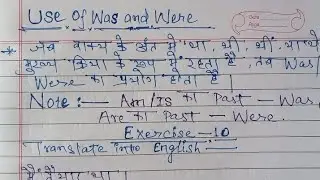 Use Of Was and Were
* जब वाक्य के अंत में था, थी, थीं, या थे
मुख्य क्रिया के रूप में रहता है, तब Was
Were का प्रयोग होता है।
Note:— Am/Is का Past — Was
Are का Past — Were.
Exercise — 10
Translate into English:—